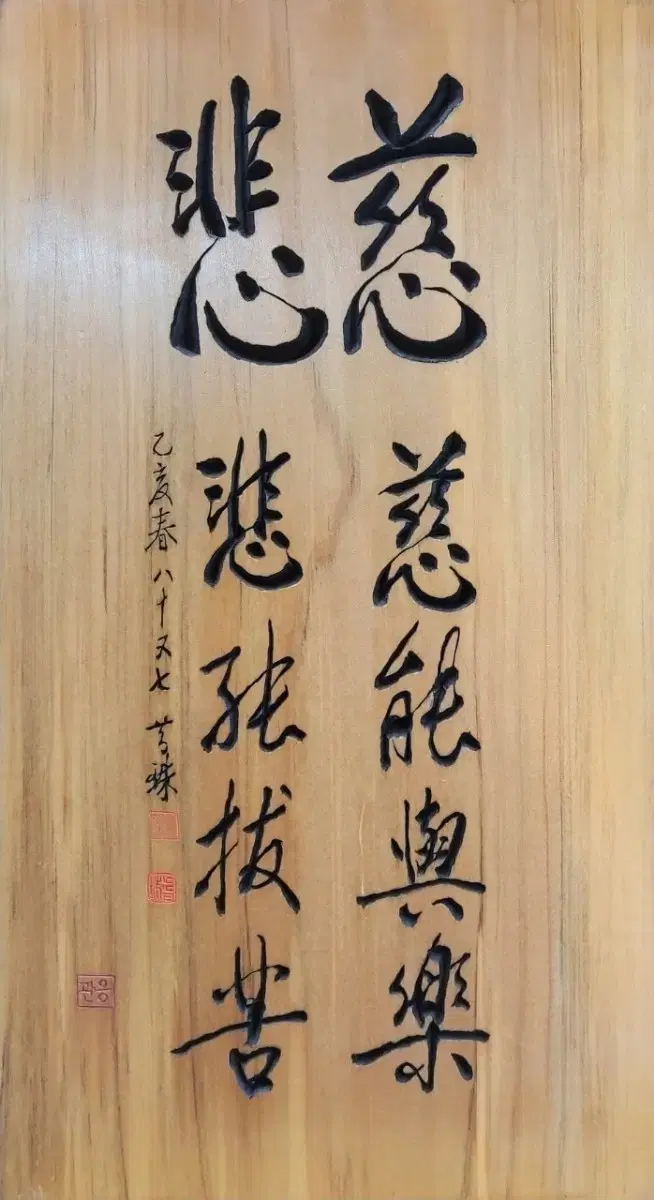 慈悲
慈能與樂
悲能拔苦
乙亥春八十又七 昔珠